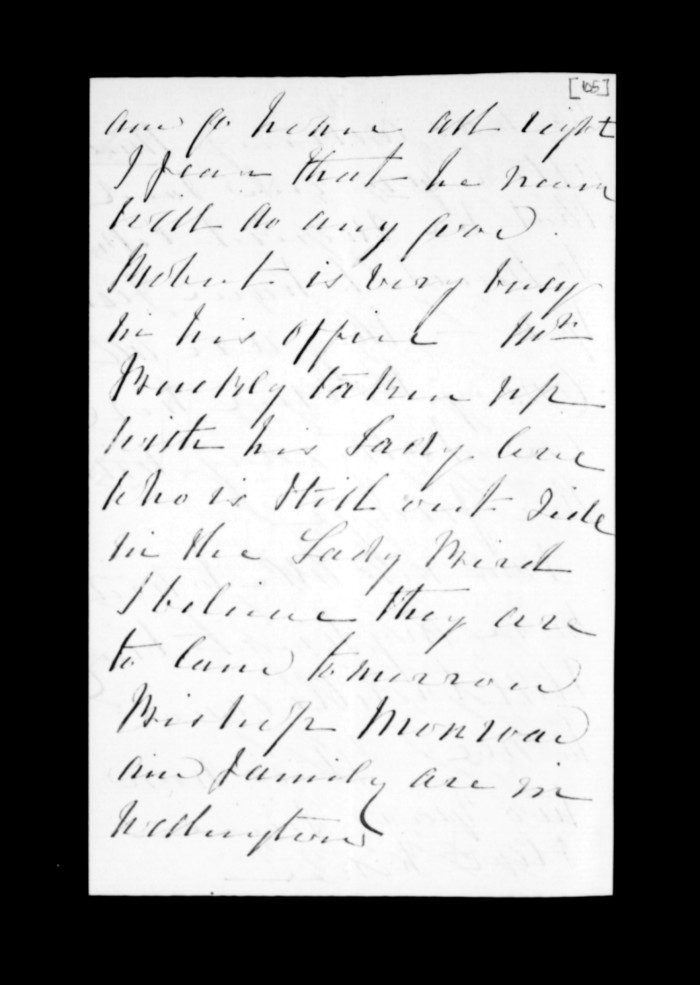 [105]
and go home all right
I fear that he never
will do any good.
Robert is very busy
in his office Mr
Buckly taken up
with his Lady love
who is still out side
in the Lady Bird
I believe they are
to land tomorrow
Bishop Monrad
and family are in
Wellington